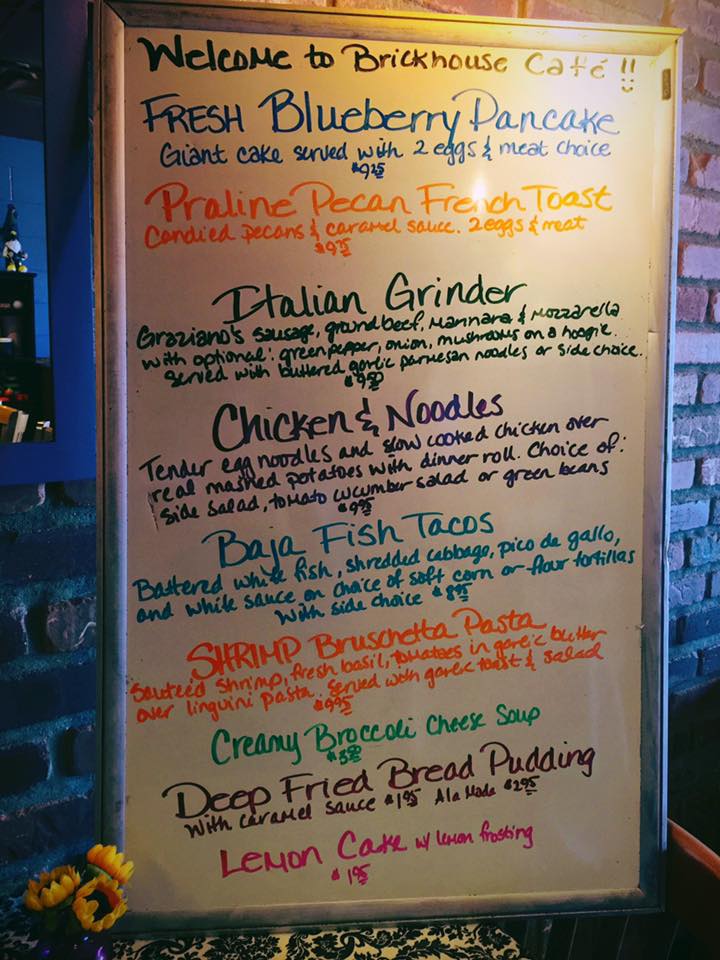 Welcome to Brickhouse Café !!
FRESH Blueberry Pancake
Giant cake served with 2 eggs & meat choice
$9.25
Praline Pecan French Toast
Candied pecans & caramel sauce. 2 eggs & meat
$9.75
Italian Grinder
Graziano's sausage, ground beef, Marinara & Mozzarella
with optional: green pepper, onion, mushrooms on a hoagie.
Served with buttered garlic parmesan noodles or side choice.
$9.50
Chicken & Noodles
Tender egg noodles and slow cooked chicken over
real mashed potatoes with dinner roll. Choice of:
side salad, tomato cucumber salad or green beans
$9.95
Baja Fish Tacos
Battered white fish, shredded cabbage, pico de gallo,
and white sauce on choice of soft corn or flour tortillas
with side choice $8.95
SHRIMP Bruschetta Pasta
Sauteed shrimp, fresh basil, tomatoes in garlic butter
over linguini pasta. Served with garlic toast & salad
$9.95
Creamy Broccoli Cheese Soup
Deep Fried Bread Pudding
With caramel sauce $1.95 Ala Mode $2.95
Lemon Cake w/ lemon frosting
$1.95